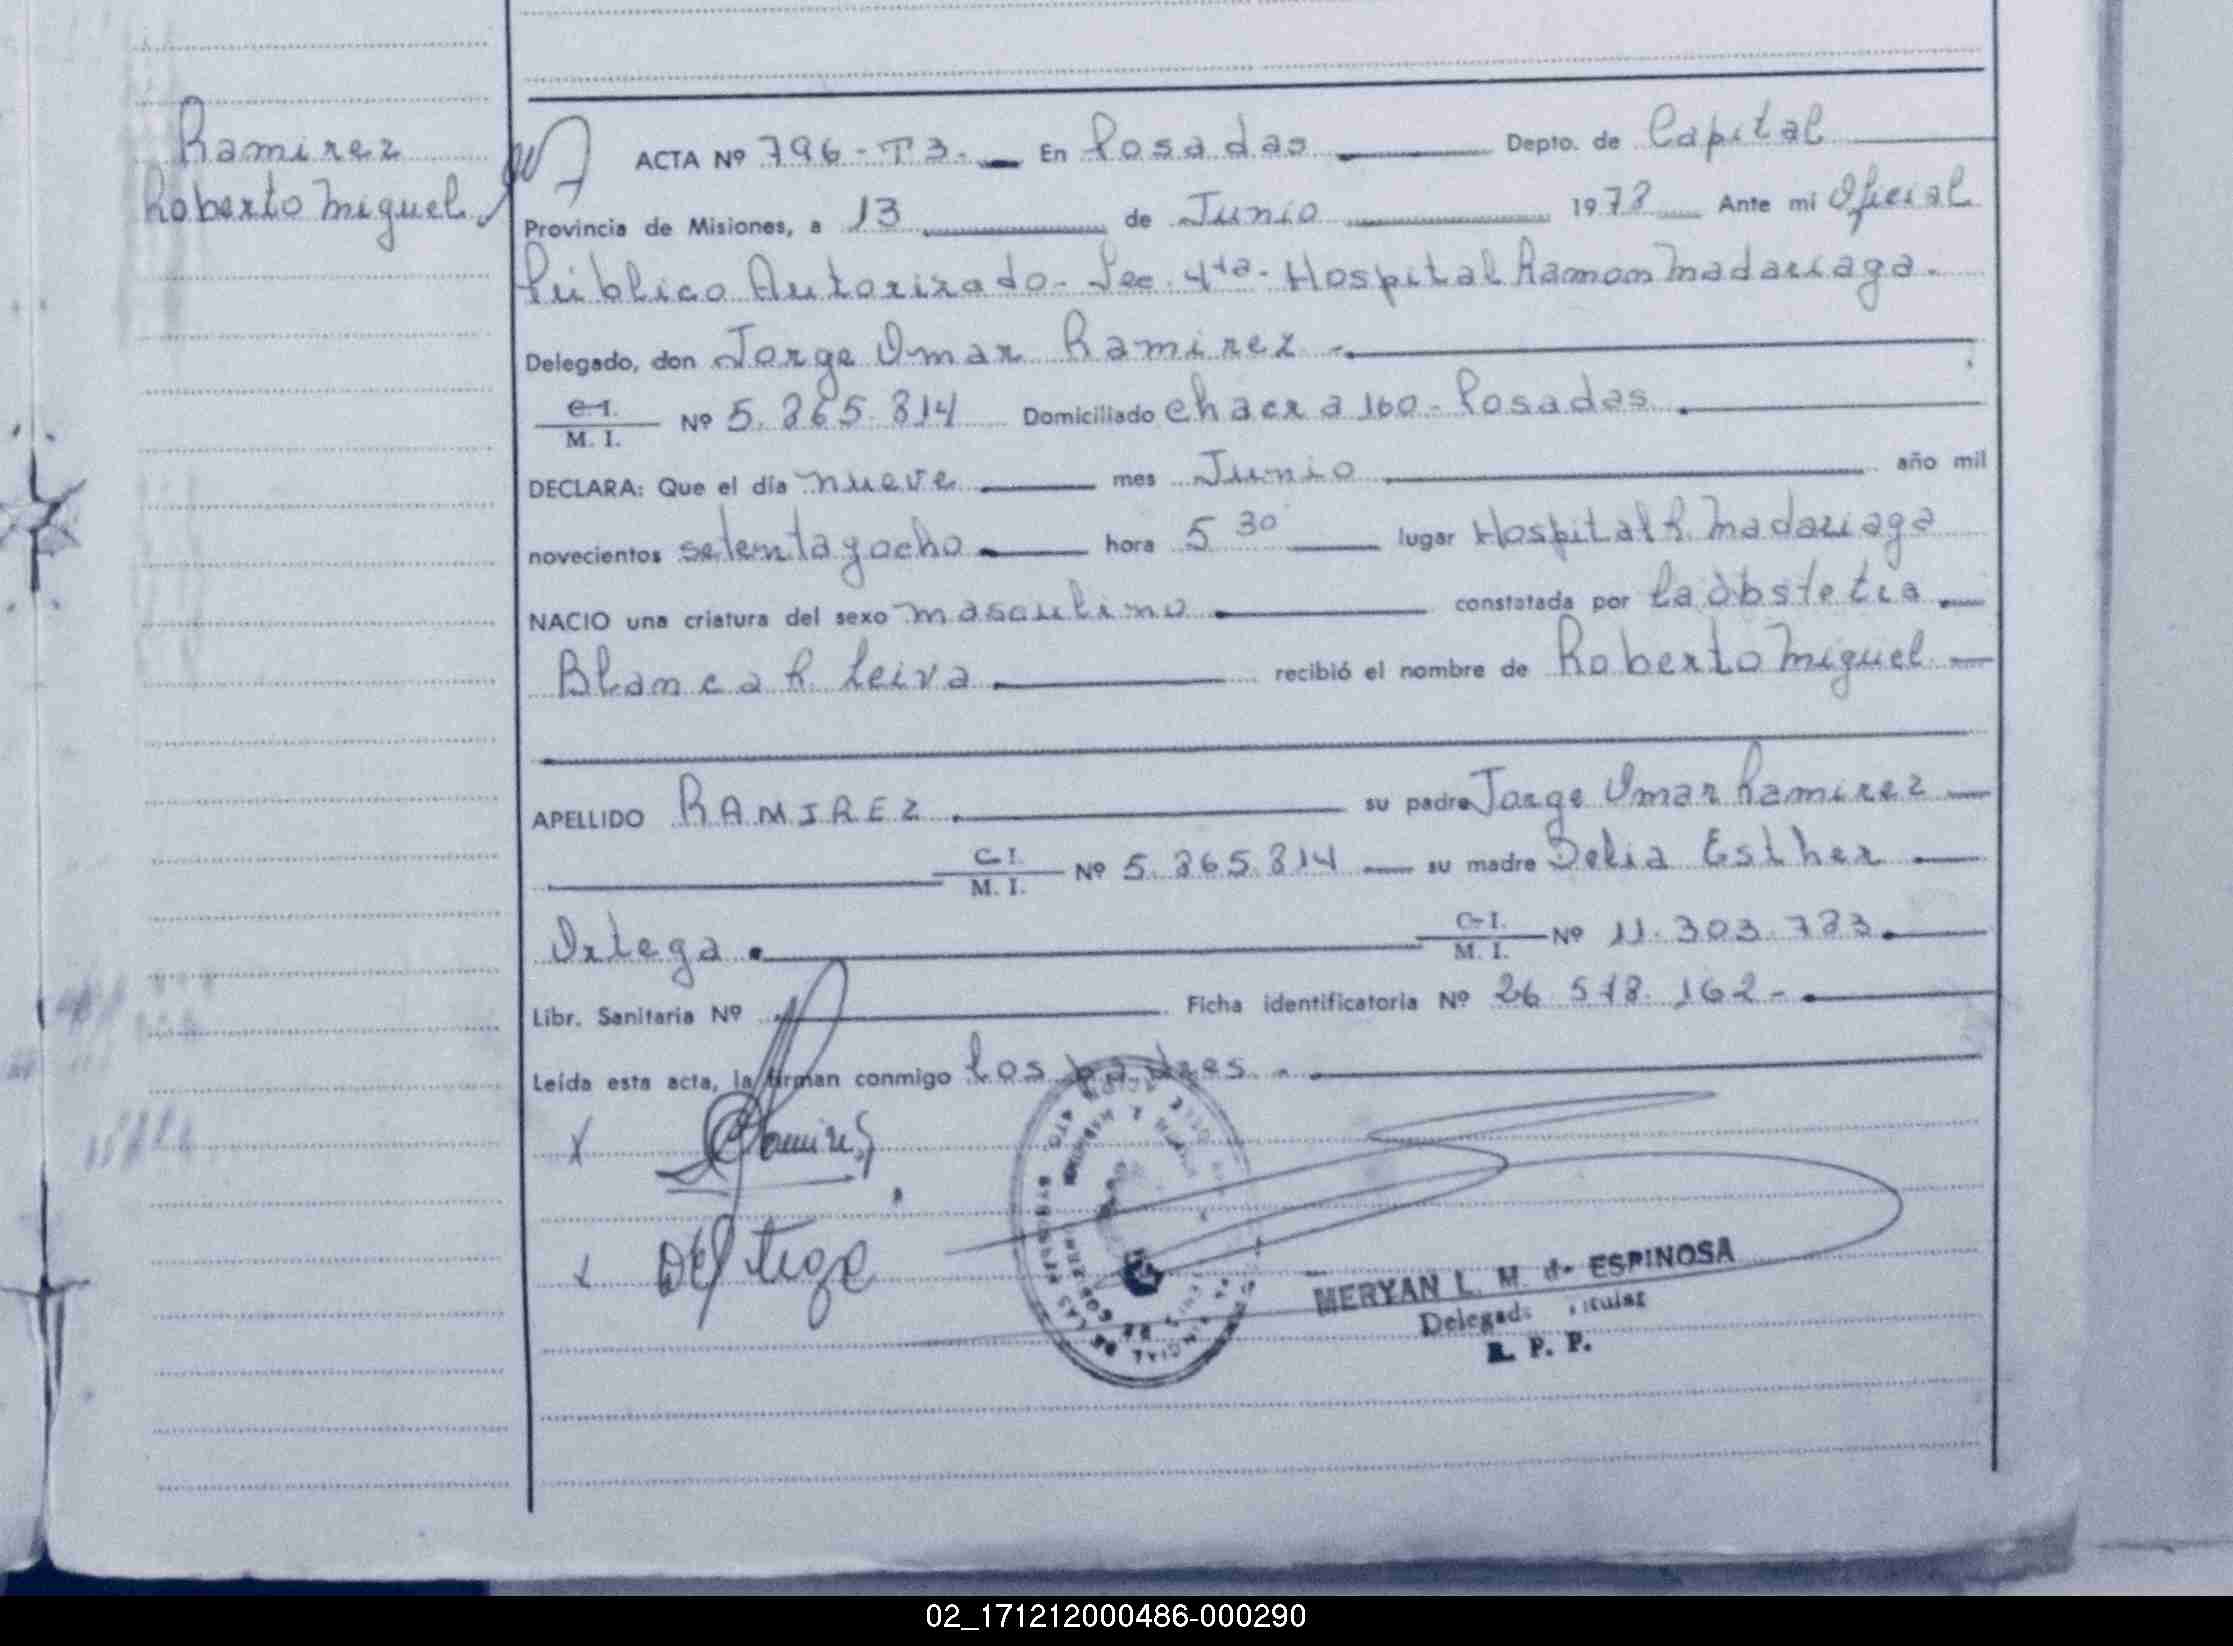 Ramirez
Roberto Miguel
ACTA Nº 796-T3.- En Posadas Depto. de Capital
Provincia de Misiones, a 13 de Junio 1978 Ante mi Oficial
Público Autorizado- Sec. 4ta- Hospital Ramon Madariaga.
Delegado, don Jorge Omar Ramirez -
C.I.
M. I. Nº 5.865.814 Domiciliado chacra 160 - Posadas
DECLARA: Que el día nueve mes Junio año mil
novecientos setenta y ocho hora 5 30 lugar Hospital R. Madariaga
NACIO una criatura del sexo masculino constatada por la obstetra
Blanca R. Leiva recibió el nombre de Roberto Miguel
APELLIDO RAMIREZ su padre Jorge Omar Ramirez
C.I.
M. I. Nº 5.865.814 su madre Delia Esther
Ortega
C.I.
M. I. Nº 11.303.783
Libr. Sanitaria Nº Ficha identificatoria Nº 26 518 162 -
Leída esta acta, la firman conmigo los padres -
MERYAN L. M. de ESPINOSA
Delegada Titular
R. P. P.
02_171212000486-000290